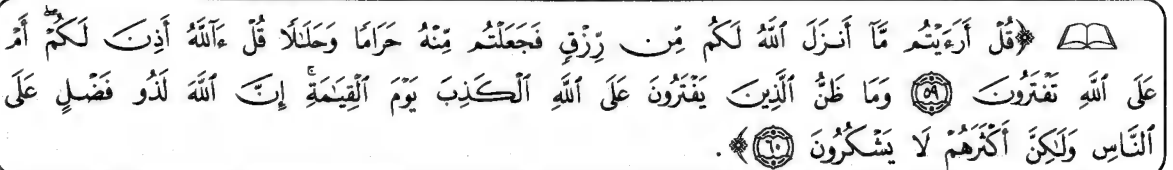 ﴿قُلْ أَرَءَيْتُم مَّآ أَنزَلَ ٱللَّهُ لَكُم مِّن رِّزْقٍ فَجَعَلْتُم مِّنْهُ حَرَامًا وَحَلَٰلًا قُلْ ءَآللَّهُ أَذِنَ لَكُمْ ۖ أَمْ
عَلَى ٱللَّهِ تَفْتَرُونَ ۝٥٩ وَمَا ظَنُّ ٱلَّذِينَ يَفْتَرُونَ عَلَى ٱللَّهِ ٱلْكَذِبَ يَوْمَ ٱلْقِيَٰمَةِ ۗ إِنَّ ٱللَّهَ لَذُو فَضْلٍ عَلَى
ٱلنَّاسِ وَلَٰكِنَّ أَكْثَرَهُمْ لَا يَشْكُرُونَ ۝٦٠﴾ .